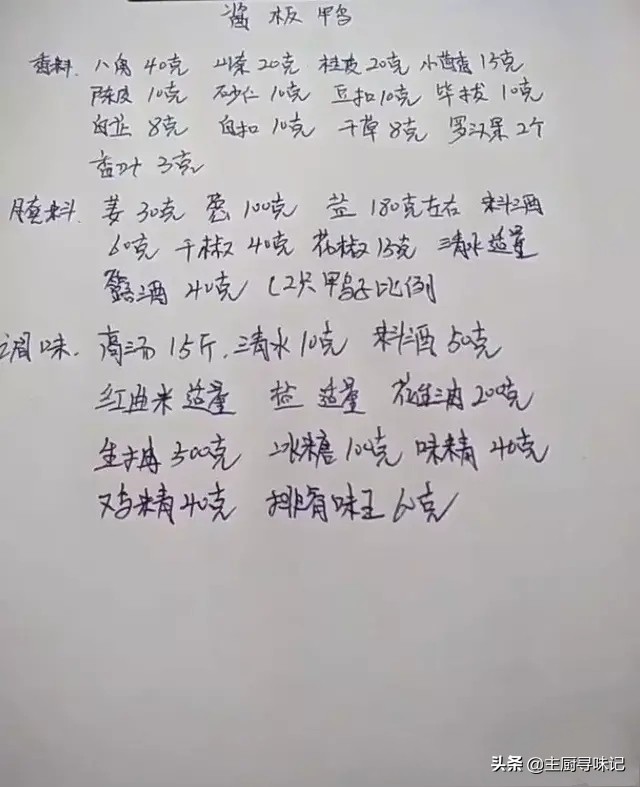 酱板鸭
香料 八角40克 山柰20克 桂皮20克 小茴香15克
陈皮10克 砂仁10克 豆扣10克 毕拔10克
白芷8克 白扣10克 干草8克 罗汉果2个
香叶3克
腌料 姜30克 葱100克 盐180克左右 料酒
60克 干椒40克 花椒15克 清水适量
露酒40克 (2只鸭子比例)
调味 高汤15斤,清水10克 料酒50克
红曲米适量 盐适量 花生油200克
生抽300克 冰糖100克 味精40克
鸡精40克 排骨味王60克
头条@主厨寻味记